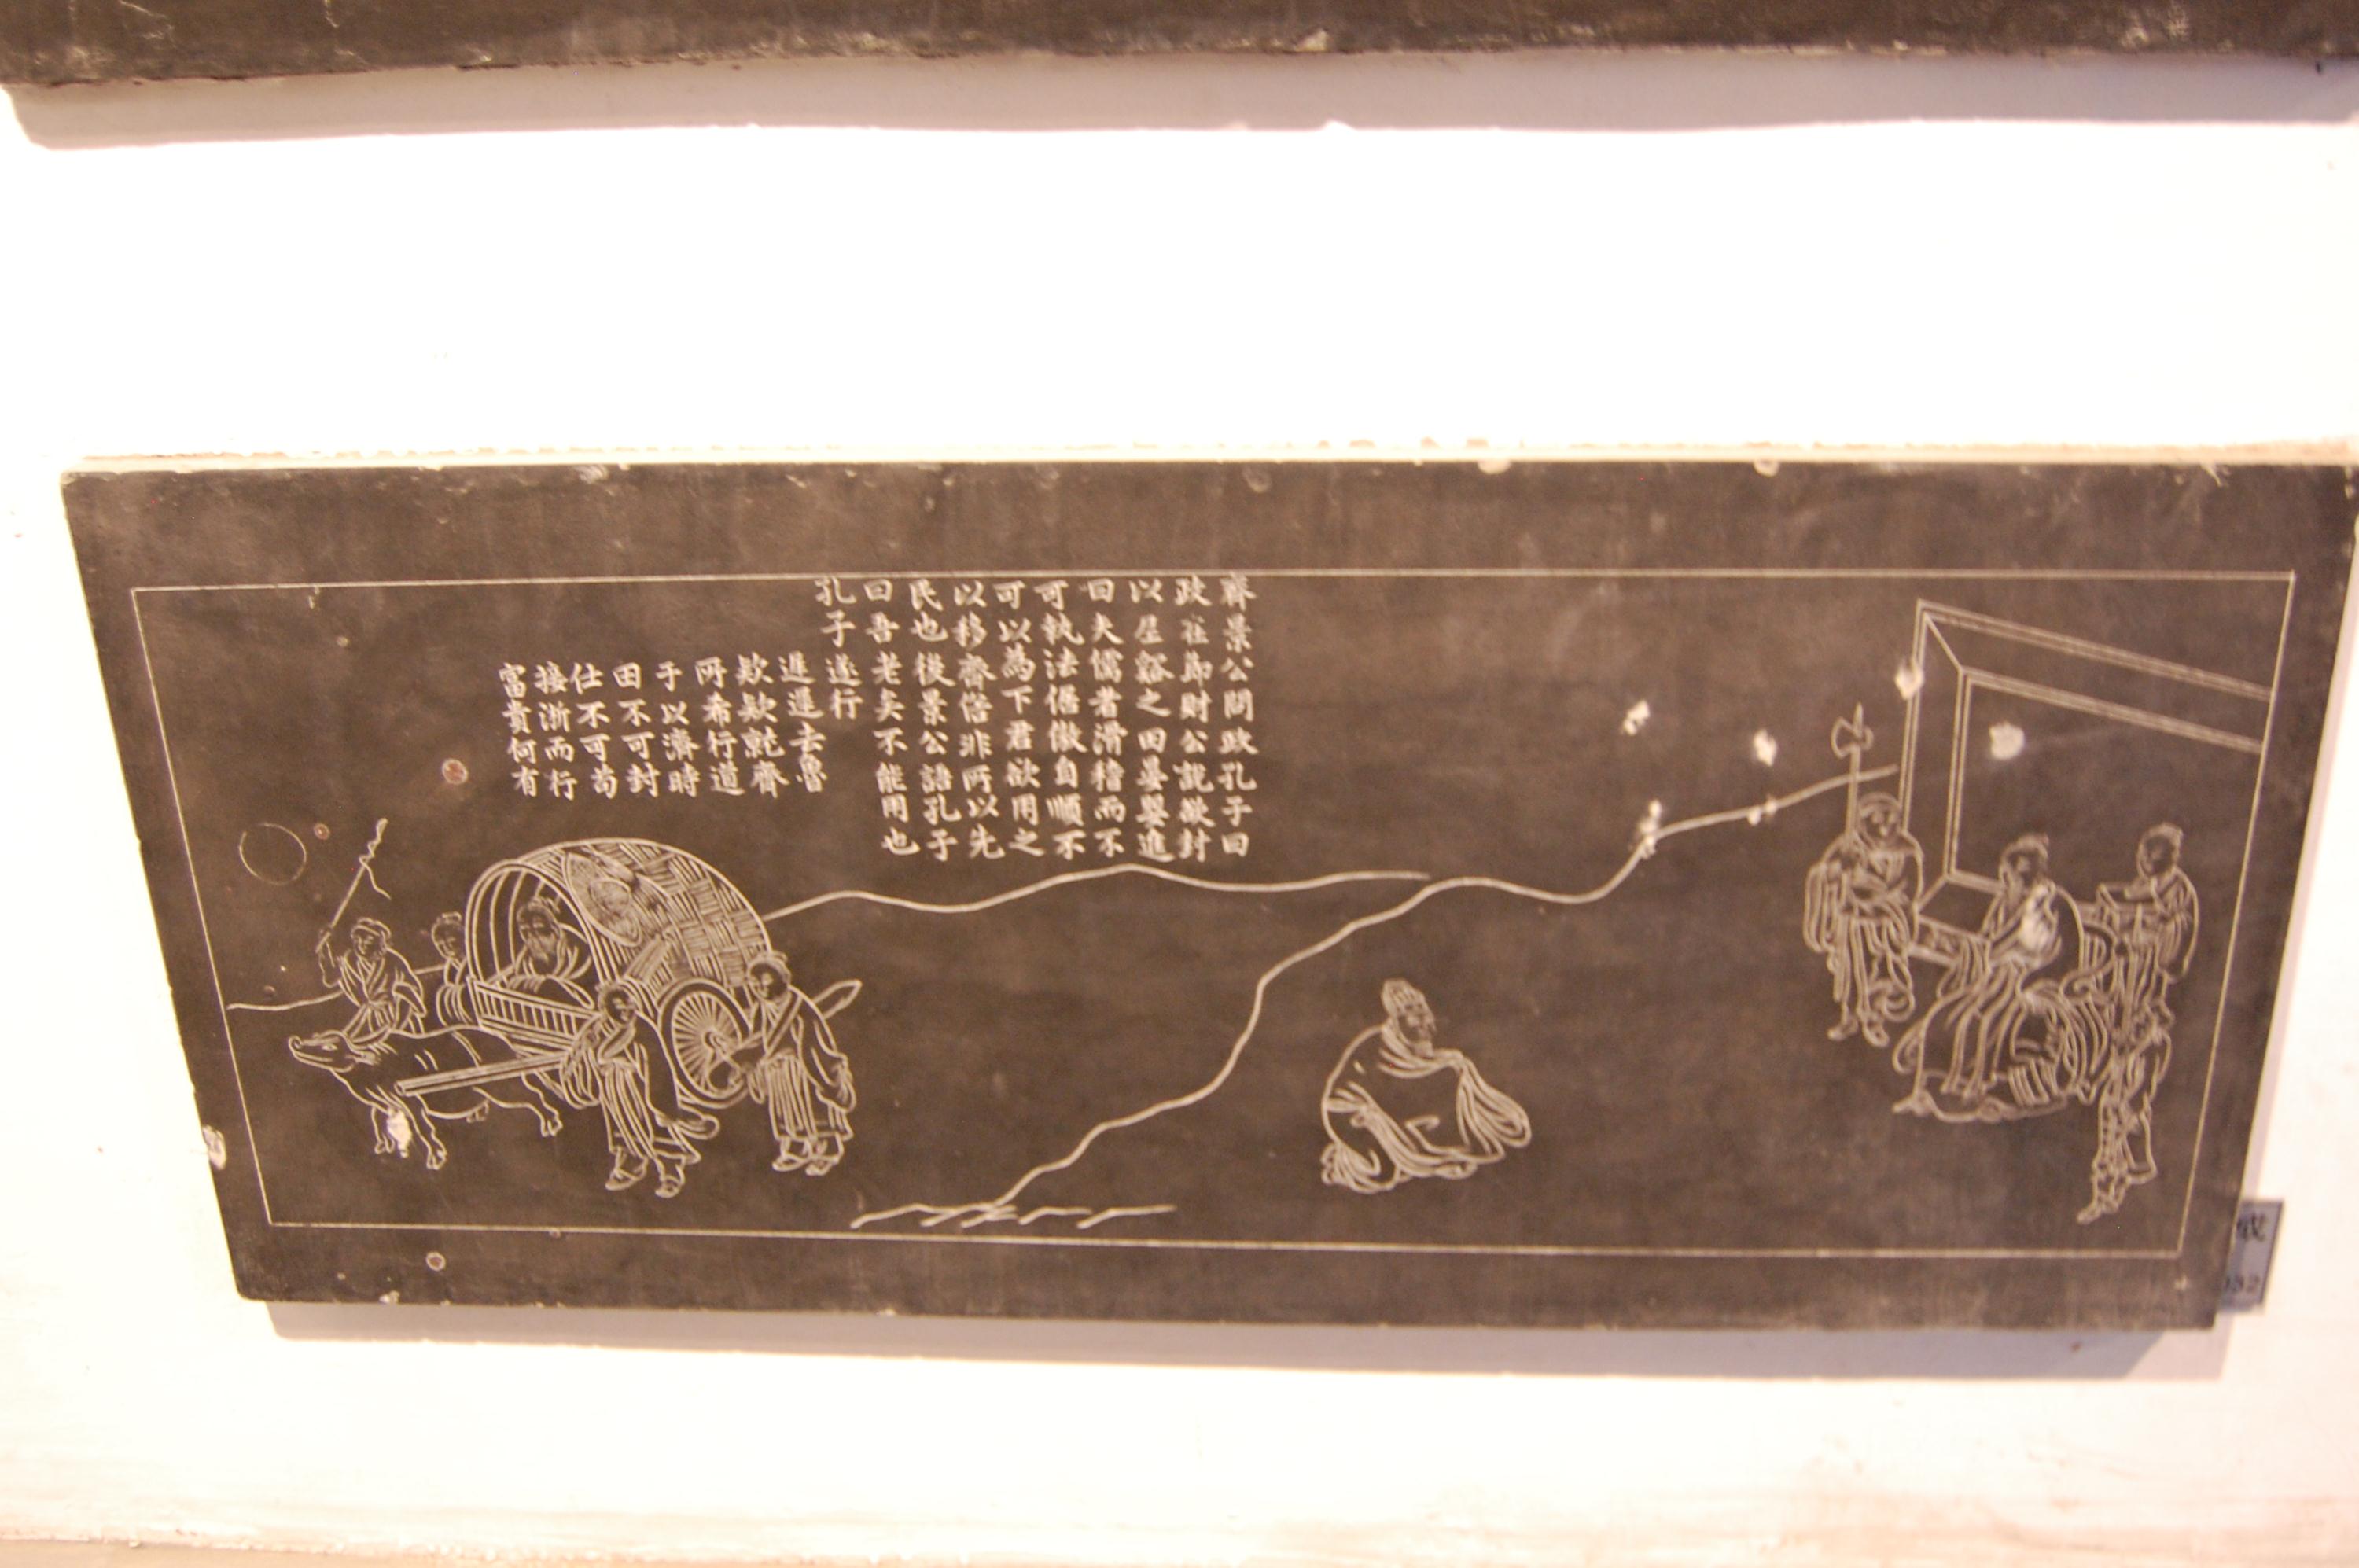 齊景公問政孔子曰
政在節財公說欲封
以尼谿之田晏嬰進
曰夫儒者滑稽而不
可執法倨傲自順不
可以為下君欲用之
以移齊俗非所以先
民也後景公語孔子
曰吾老矣不能用也
孔子遂行
遲遲去魯
欵欵就齊
所希行道
于以濟時
田不可封
仕不可苟
接淅而行
富貴何有